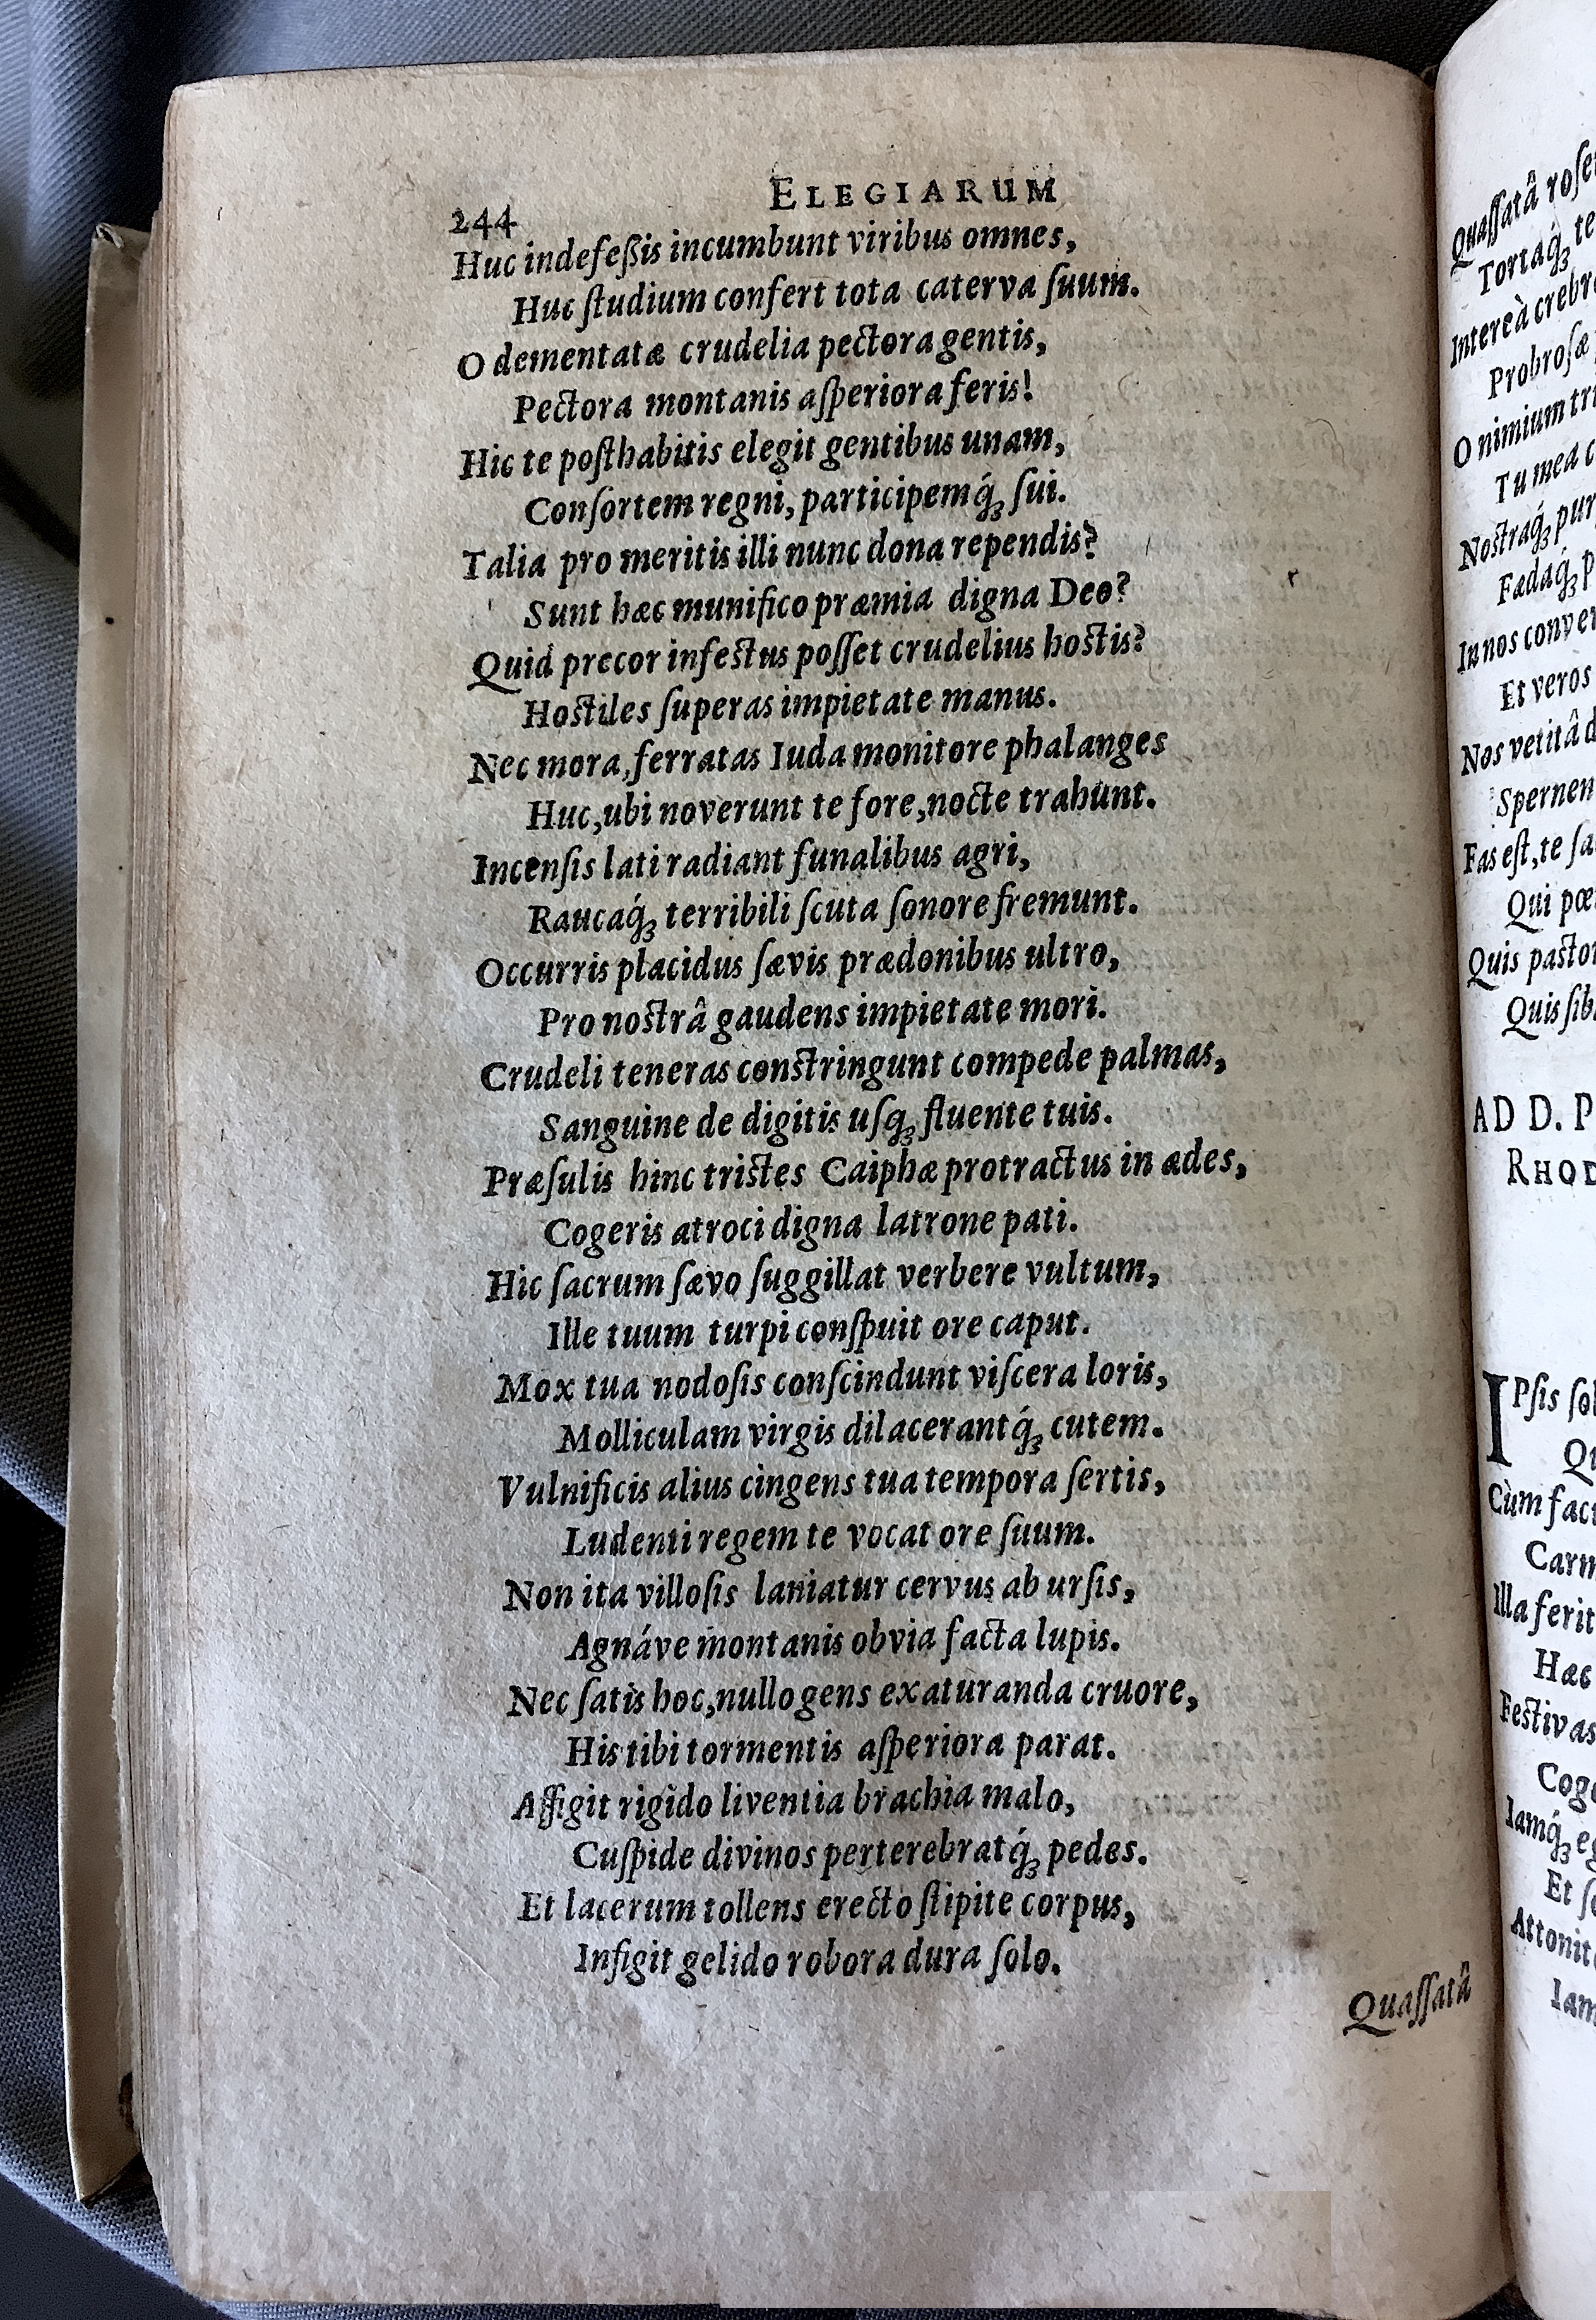 ELEGIARUM
244
Huc indefeßis incumbunt viribus omnes,
Huc ſtudium confert tota caterva ſuum.
O dementatæ crudelia pectora gentis,
Pectora montanis aſperiora feris!
Hic te poſthabitis elegit gentibus unam,
Conſortem regni, participemq́ꝫ ſui.
Talia pro meritis illi nunc dona rependis?
Sunt hæc munifico præmia digna Deo?
Quid precor infestus poſſet crudelius hostis?
Hostiles ſuperas impietate manus.
Nec mora, ferratas Iuda monitore phalanges
Huc, ubi noverunt te fore, nocte trahunt.
Incenſis lati radiant funalibus agri,
Raucaq́ꝫ terribili ſcuta ſonore fremunt.
Occurris placidus ſævis prædonibus ultro,
Pro nostrâ gaudens impietate mori.
Crudeli teneras constringunt compede palmas,
Sanguine de digitis uſqꝫ fluente tuis.
Præſulis hinc tristes Caiphæ protractus in ædes,
Cogeris atroci digna latrone pati.
Hic ſacrum ſævo ſuggillat verbere vultum,
Ille tuum turpi conſpuit ore caput.
Mox tua nodoſis conſcindunt viſcera loris,
Molliculam virgis dilacerantq́ꝫ cutem.
Vulnificis alius cingens tua tempora ſertis,
Ludenti regem te vocat ore ſuum.
Non ita villoſis laniatur cervus ab urſis,
Agnáve montanis obvia facta lupis.
Nec ſatis hoc, nullo gens exaturanda cruore,
His tibi tormentis aſperiora parat.
Affigit rigido liventia brachia malo,
Cuſpide divinos perterebratq́ꝫ pedes.
Et lacerum tollens erecto ſtipite corpus,
Infigit gelido robora dura ſolo.
Quaſſatâ
Quaſſatâ
Tortaq́ꝫ
Intereà
Probroſæ
O nimium
Tu mea
Nostraq́ꝫ
Fædaq́ꝫ
In nos
Et veros
Nos vetitâ
Fas eſt, te
Qui
Quis
Quis
AD D. P
IPſis
Cùm
Illa ferit
Hæc
Iamq́ꝫ
Et